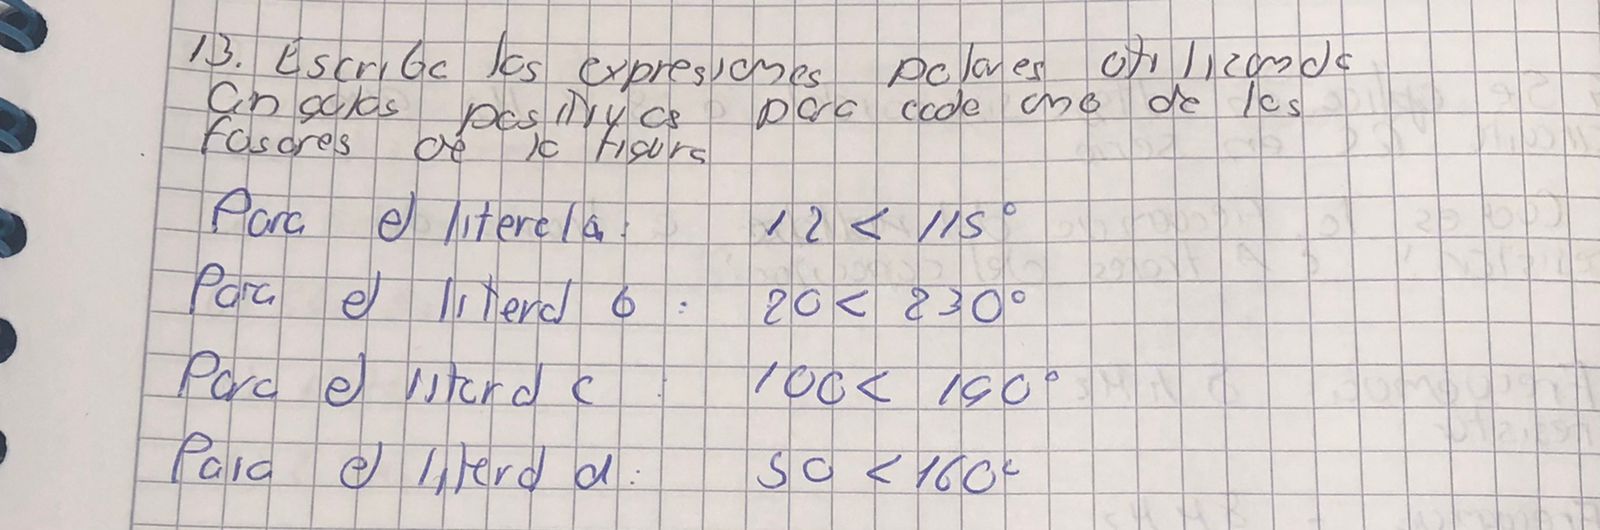 13. Escriba las expresiones polares utilizando
angulos positivos para cada uno de los
fasores de la figura
Para el literal a: 12 < 115°
Para el literal b: 20 < 230°
Para el literal c: 100 < 190°
Para el literal d: 50 < 160°